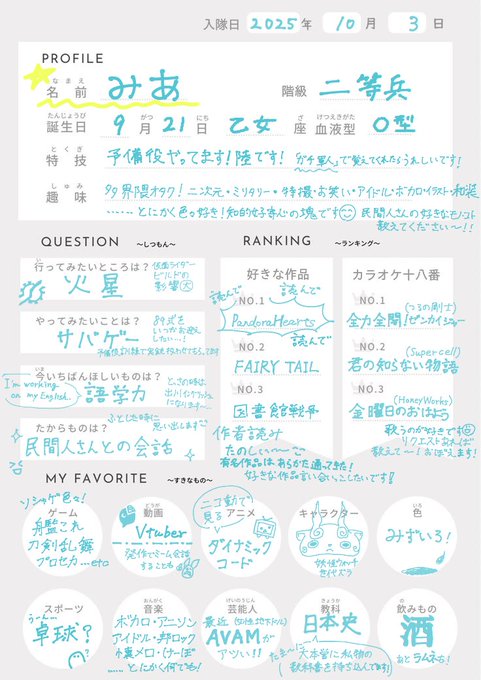 入隊日 2025 年 10 月 3 日
PROFILE
なまえ
名前 みあ 階級 二等兵
たんじょうび がつ にち ざ けつえきがた
誕生日 9 月 21 日 乙女 座 血液型 O型
とくぎ
特技 予備役やってます!陸です! "ガチ軍人"で覚えてくれたらうれしいです!
しゅみ
趣味 多界隈オタク!二次元・ミリタリー・特撮・お笑い・アイドル・ボカロ・イラスト・和装
……とにかく色々好き!知的好奇心の塊です 民間人さんの好きなモノ・コト
教えてくださいー!!
QUESTION ～しつもん～
行ってみたいところは?
火星
仮面ライダー
ビルドの
影響(大)
やってみたいことは?
サバゲー
89式を
いつかお迎え
したい…!
いまいちばんほしいものは?
I'm working
on my English.
語学力
ときどき
出川イングリッシュ
になります〜
たからものは?
ふとした時に
思い出します
民間人さんとの会話
RANKING ～ランキング～
好きな作品
NO.1
読んで 読んで
PandoraHearts
NO.2
読んで
FAIRY TAIL
NO.3
図書館戦争
作者読み
たのしい〜
有名作品はあらかた通ってきた!
好きな作品言い合いこしたいです!
カラオケ十八番
NO.1
(つるの剛士)
全力全開!ゼンカイジャー
NO.2
(supercell)
君の知らない物語
NO.3
(HoneyWorks)
金曜日のおはよう
歌うのが好きです
リクエストあれば
教えて〜!おぼえます!
MY FAVORITE ～すきなもの～
ソシャゲ色々!
ゲーム
艦これ
刀剣乱舞
プロセカ…etc
どうが
動画
Vtuber
発作でホーム会話
することも
ニコ動で
見る
アニメ
ダイナミック
コード
キャラクター
妖怪ウォッチ
世代ズラ
いろ
色
みずいろ!
スポーツ
うーん…
卓球?
おんがく
音楽
ボカロ・アニソン
アイドル・邦ロック
懐メロ・けーぽ
…とにかく何でも!
げいのうじん
芸能人
最近(女性地下ドル)
AVAMが
アツい!!
きょうか
教科
日本史
たま〜に
大本営に私物の
教科書を持ち込んでます!
の
飲みもの
酒
あとラムネも!